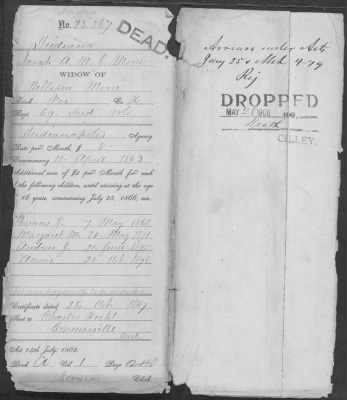 No. 23,567
DEAD.
Indiana
Sarah A. M. E. Moore
WIDOW OF
William Moore
Rank Pri Co K
Regt 69 Ind Vols
Indianapolis Agency
Rate per Month $ 8
Commencing 11 April 1863
Additional sum of $2 per Month for each
of the following children, until arriving at the age
of 16 years, commencing July 25, 1866, viz:
Thomas J. 7 May
Margaret M. 20 May
Andrew J. 21 June
Annie Feb.
Certificate dated 28 Oct 1867
Sent to Charles
Connersville
Ind.
Act 14th July, 1862.
Book A Vol. 1 Page
Clerk.
Arrears under Acts
Jany 25 & Mch 4-79
Rej
DROPPED
MAY 1906 190
Death
CILLEY.